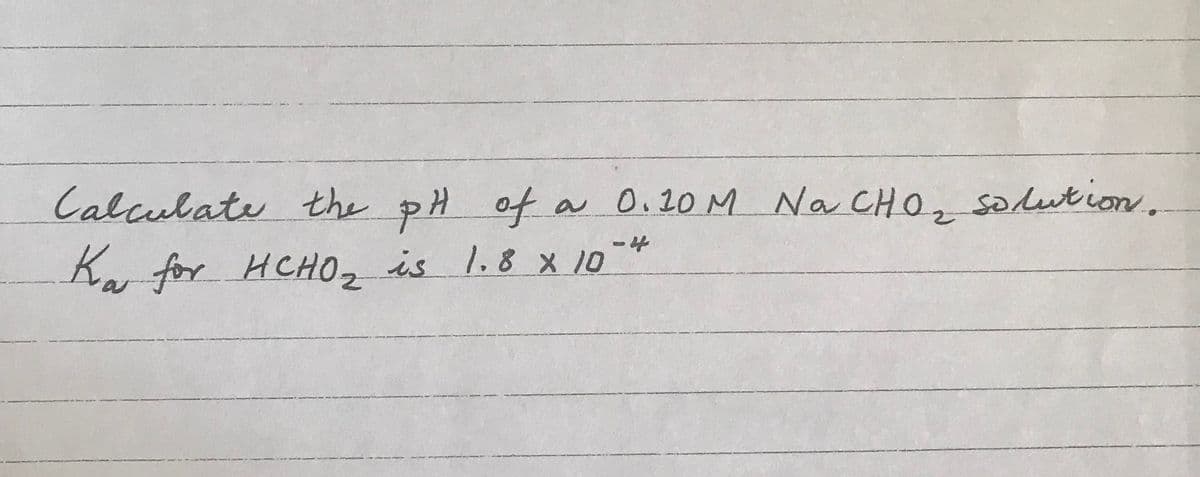 Calculate the pH of a 0.10 M NaCHO₂ solution.
Ka for HCHO₂ is 1.8 x 10⁻⁴